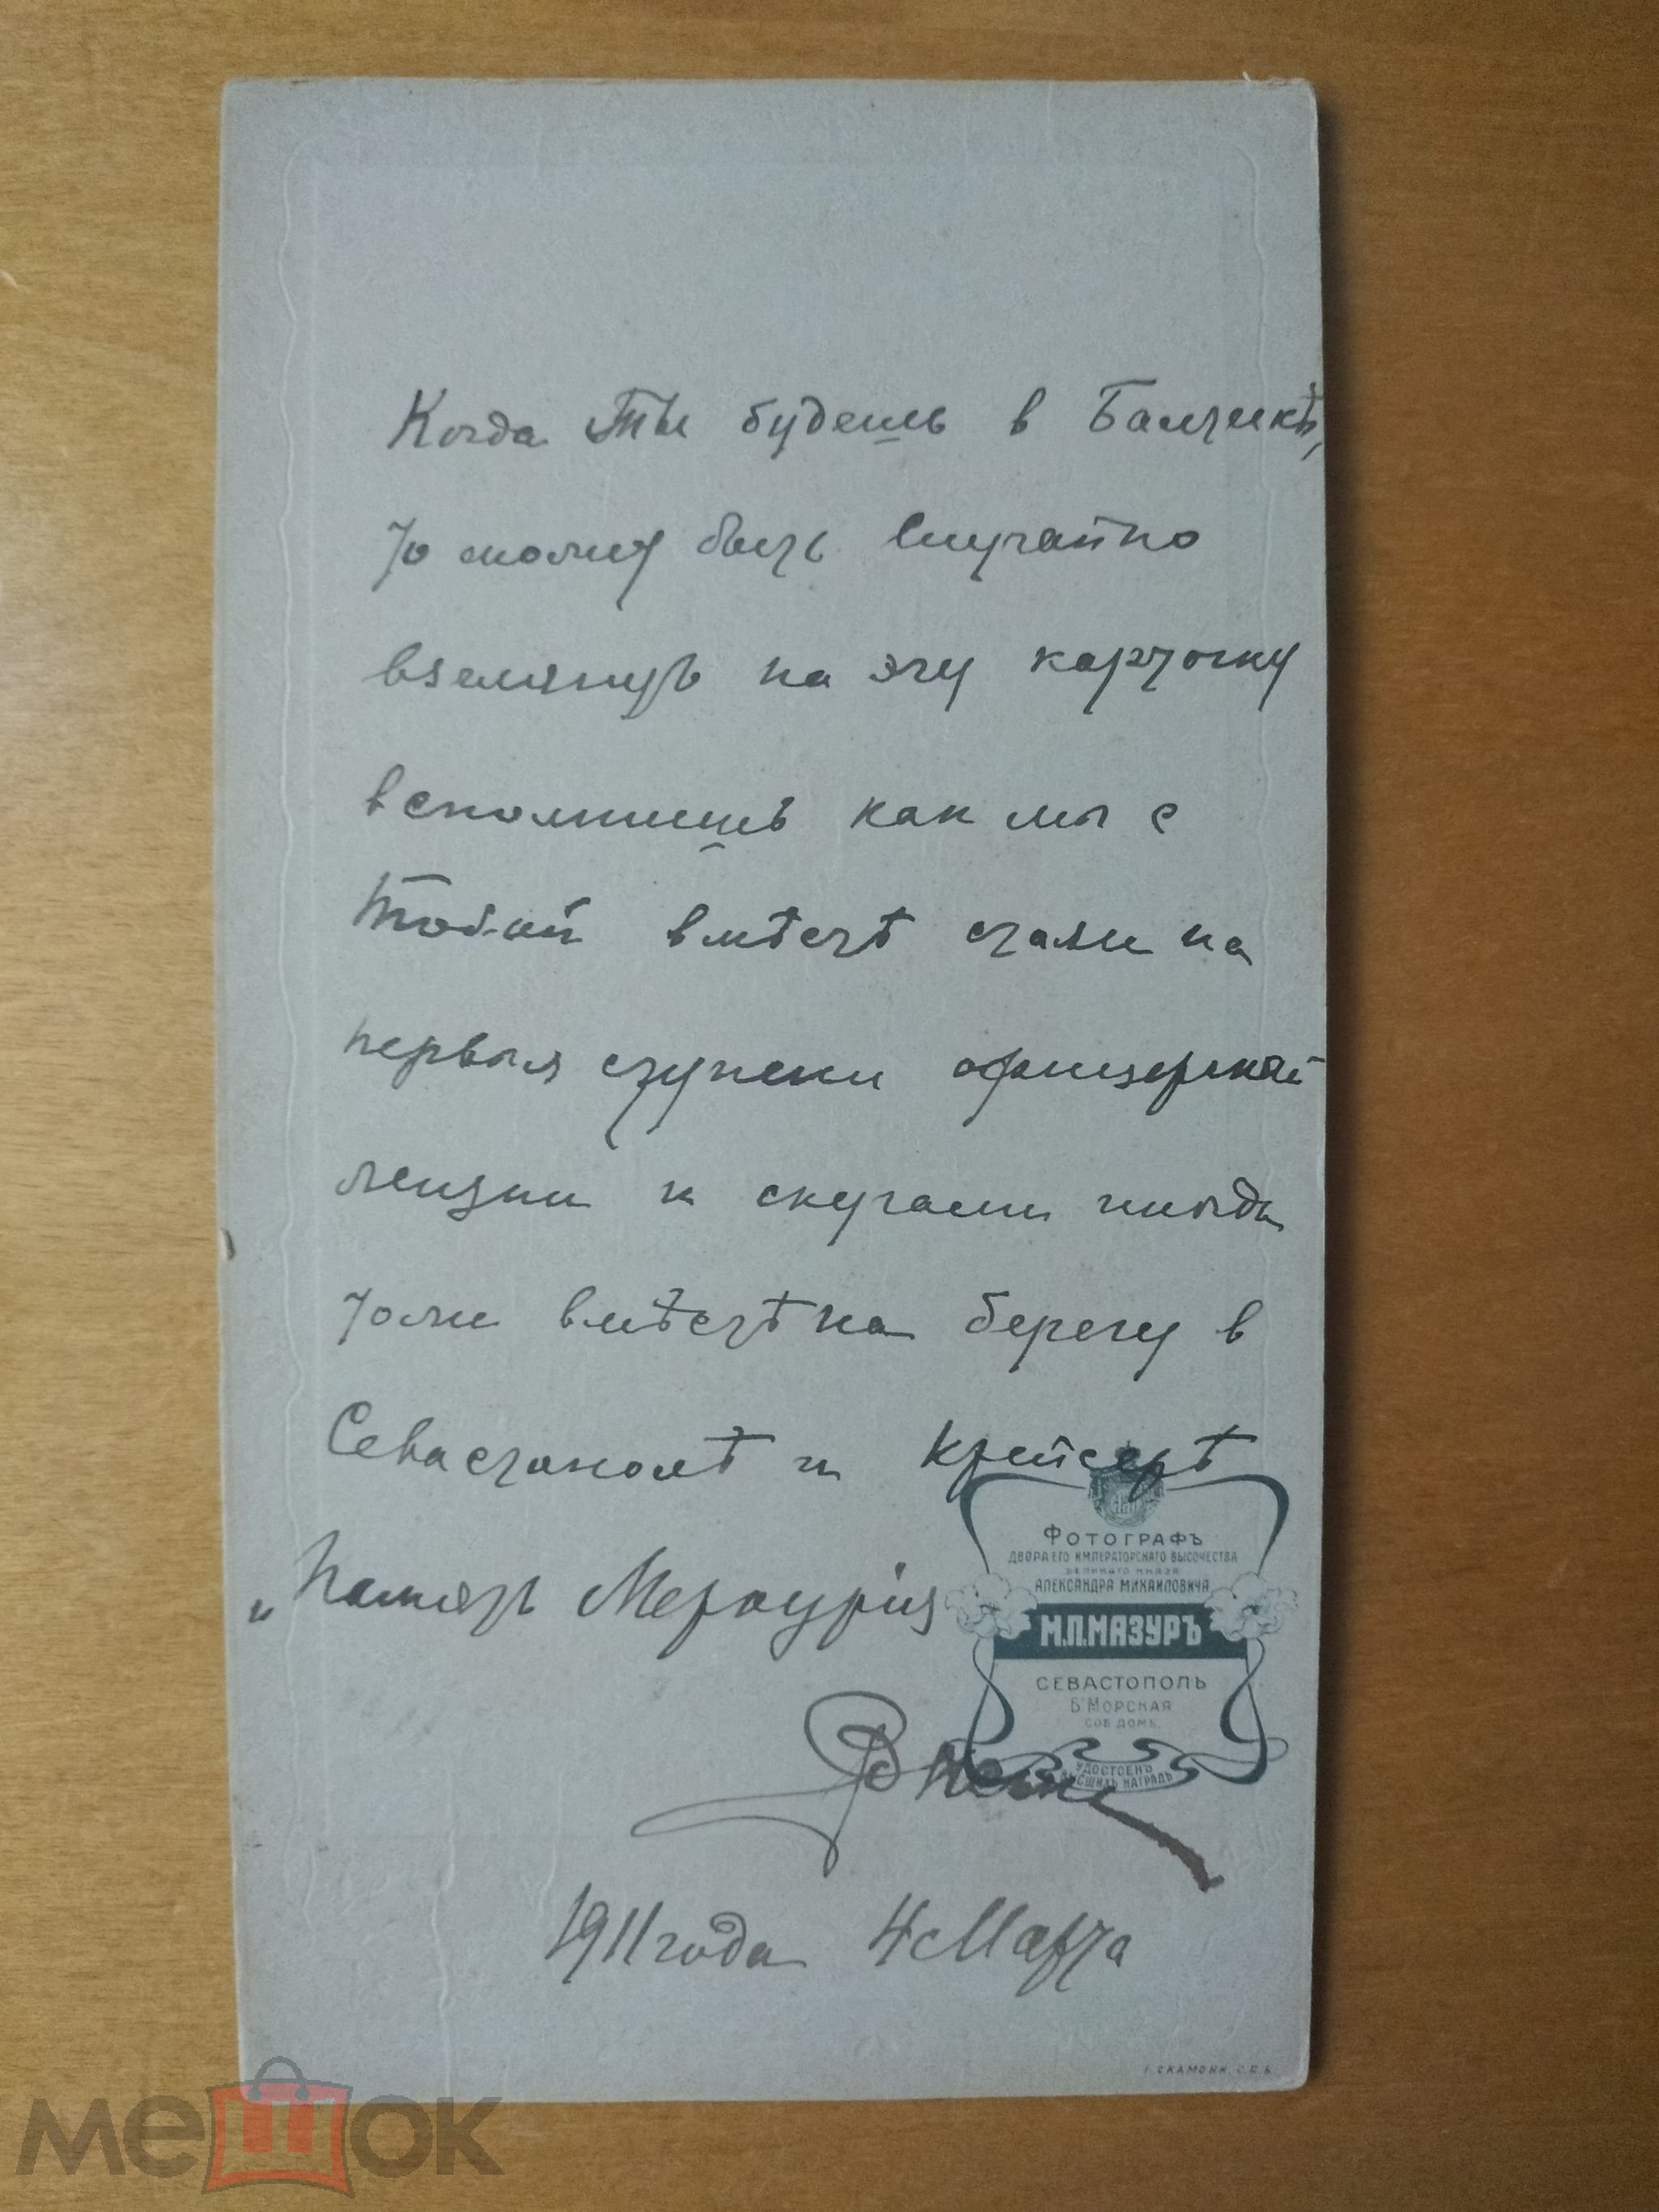 Когда Ты будешь в Балчикѣ,
то может быть Случайно
взглянув на эту карточку
вспомнишь как мы с
Тобой вмѣстѣ стали на
первыя ступени офицерской
жизни и скучали иногда
тоже вмѣстѣ на берегу в
Севастополѣ и крейсерѣ
„Память Меркурія
ФОТОГРАФЪ
ДВОРА ЕГО ИМПЕРАТОРСКАГО ВЫСОЧЕСТВА
ВЕЛИКАГО КНЯЗЯ
АЛЕКСАНДРА МИХАИЛОВИЧА
М.П.МАЗУРЪ
СЕВАСТОПОЛЬ
Б. МОРСКАЯ
СОБ. ДОМЪ.
УДОСТОЕНЪ
ВЫСШИХЪ НАГРАДЪ
1911 года 4 Марта
I. СКАМОНИ. С.П.Б.
мешок